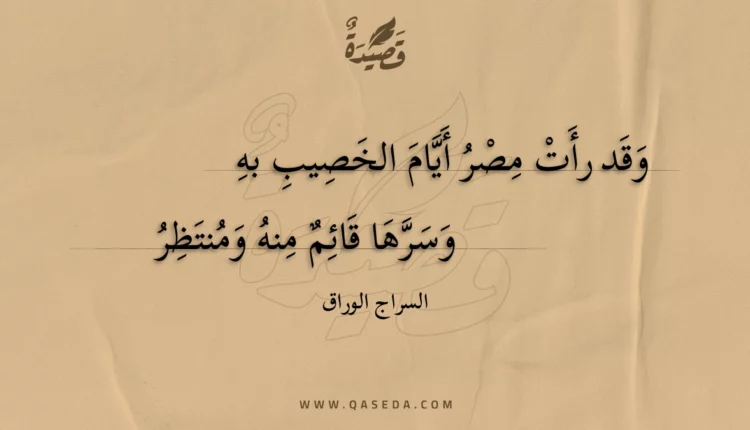 قَصِيدَةٌ
وَقَد رأَتْ مِصْرُ أَيَّامَ الخَصِيبِ بهِ
وَسَرَّهَا قَائِمٌ مِنهُ وَمُنتَظِرُ
السراج الوراق
WWW.QASEDA.COM